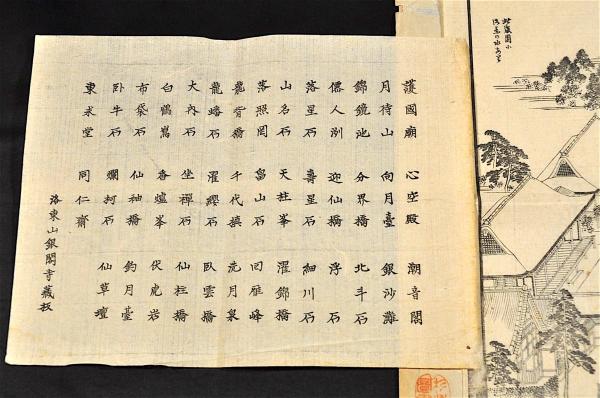 護國廟 心空殿 潮音閣
月待山 向月臺 銀沙灘
錦鏡池 分界橋 北斗石
僊人洲 迎仙橋 浮石
落星石 壽星石 細川石
山名石 天柱峯 濯錦橋
落照岡 畠山石 回雁峰
龍背橋 千代槙 洗月泉
龍蟠石 濯纓石 臥雲橋
大內石 坐禪石 仙桂橋
白鶴嶌 香爐峯 伏虎岩
布袋石 仙袖橋 釣月臺
臥牛石 爛柯石 仙草壇
東求堂 同仁齋
洛東山銀閣寺藏板